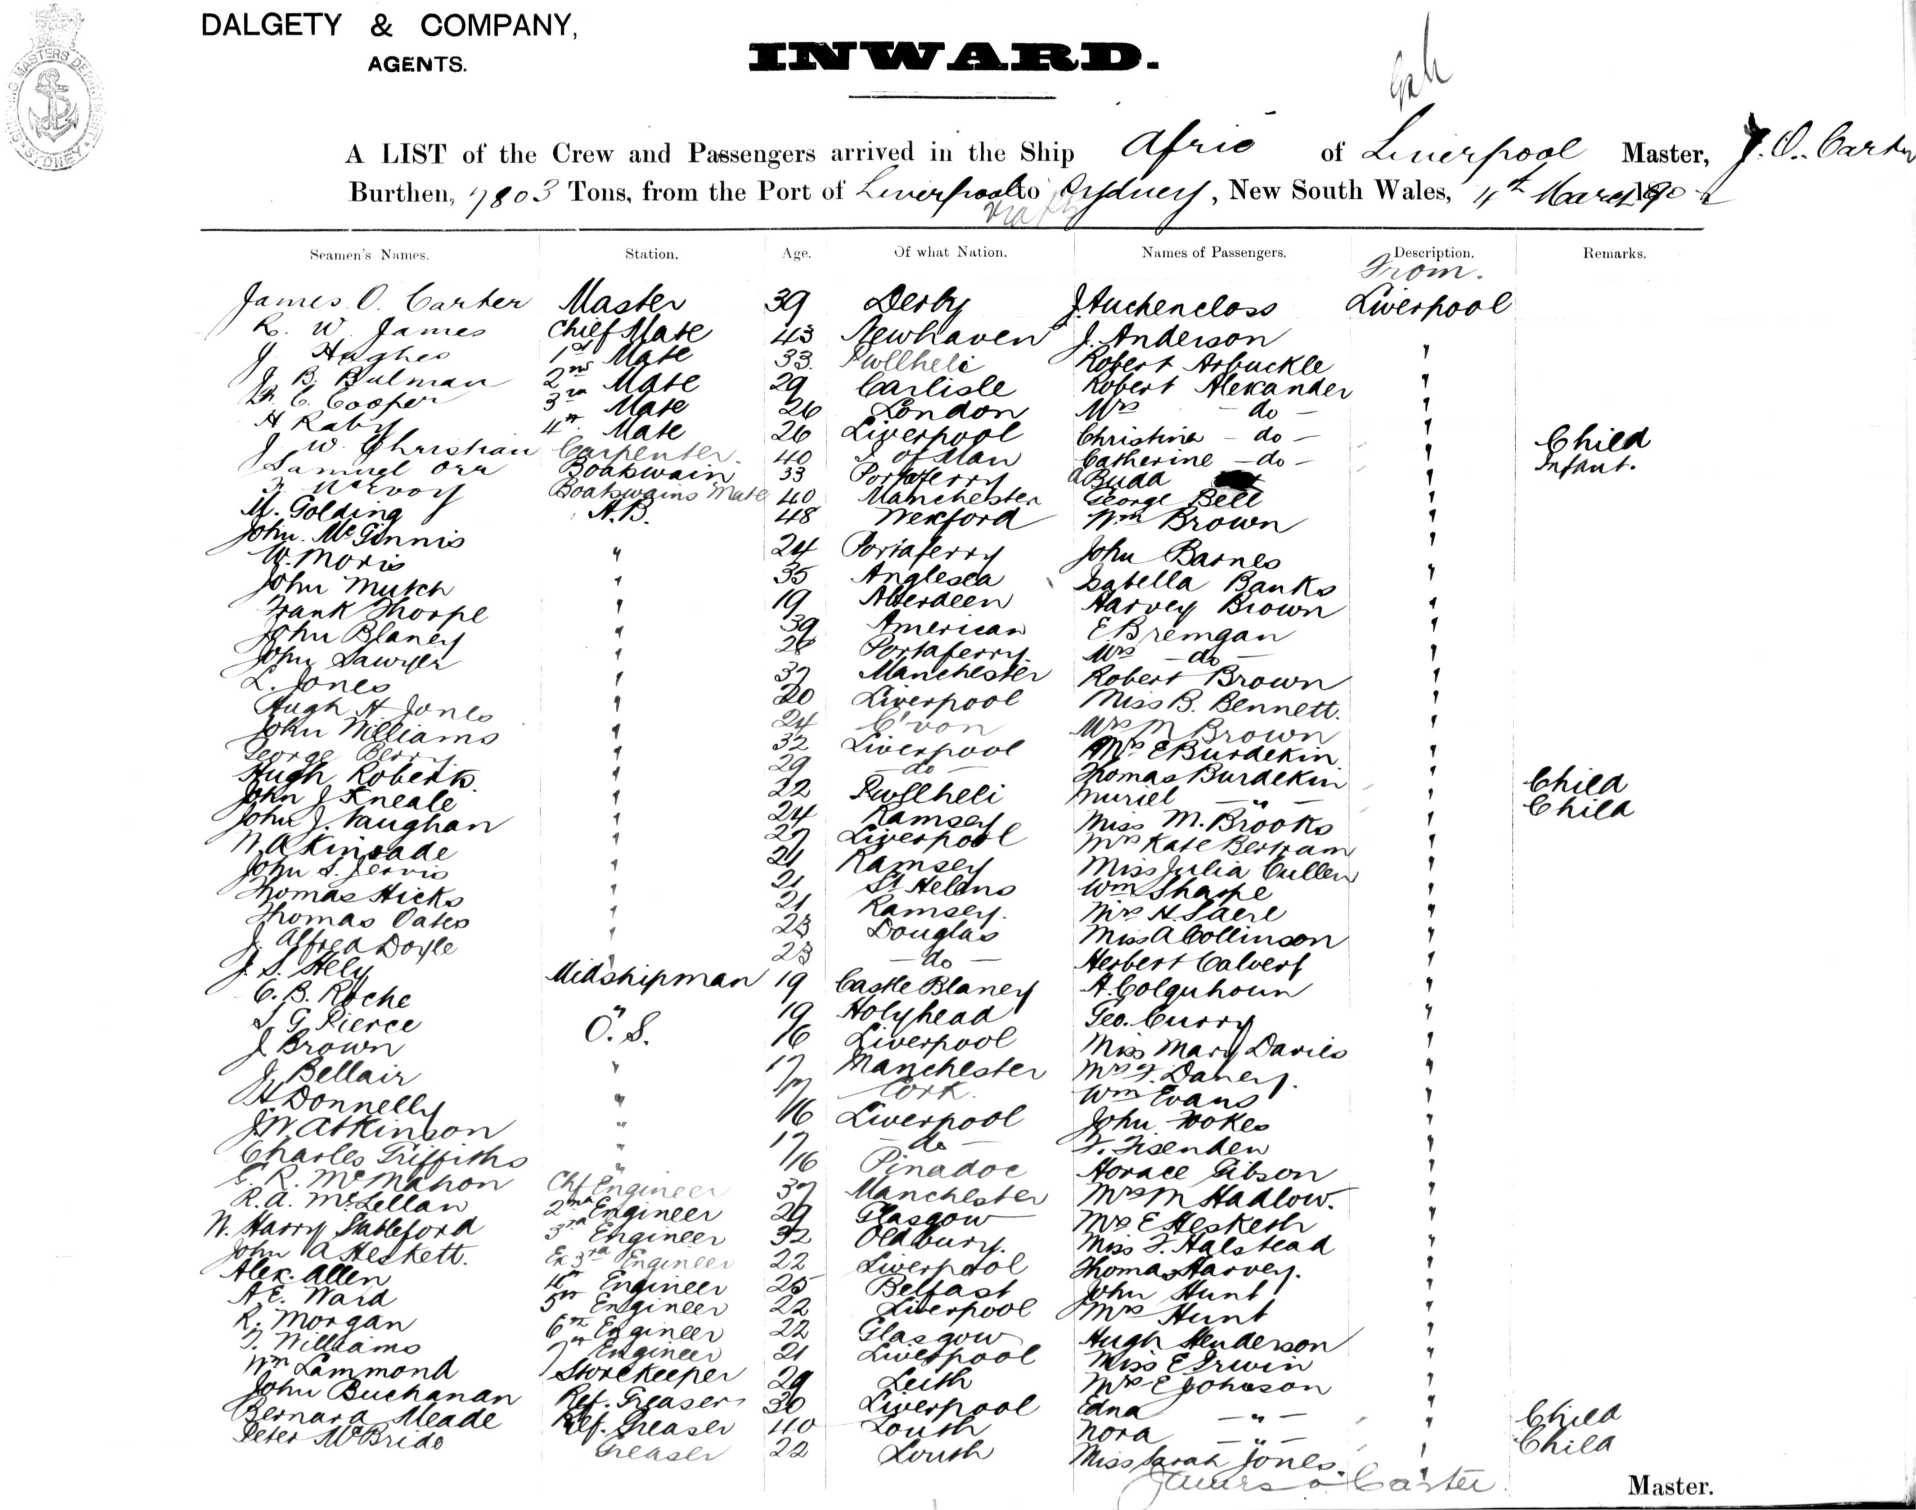 DALGETY & COMPANY,
AGENTS.
INWARD.
A LIST of the Crew and Passengers arrived in the Ship Afric of Liverpool Master, J. O. Carter
Burthen, 7803 Tons, from the Port of Liverpool to Sydney, New South Wales, 4th March 190
Seamen's Names. Station. Age. Of what Nation. Names of Passengers. Description. Remarks.
From.
James O. Carter Master 39 Derby J. Auchencloss Liverpool
R. W. James Chief Mate 43 Newhaven J. Anderson "
J. Hughes 1st Mate 33 Pwllheli Robert Arbuckle "
J. B. Bulman 2nd Mate 29 Carlisle Robert Alexander "
E. Cooper 3rd Mate 26 London Mrs - do - "
H Raby 4th Mate 26 Liverpool Christina - do - " Child
J. W. Christian Carpenter 40 I of Man Catherine - do - " Infant.
Samuel Orr Boatswain 33 Portaferry A Budd "
McEvoy Boatswains Mate 40 Manchester George Bell "
M. Golding A.B. 48 Wexford Wm Brown "
John McGinnis " 24 Portaferry John Barnes "
W. Moris " 35 Anglesea Isabella Banks "
John Mutch " 19 Aberdeen Harvey Brown "
Frank Thorpe " 39 American E Bremgan "
John Blaney " 28 Portaferry Mrs - do - "
John Sawyer " 37 Manchester Robert Brown "
L. Jones " 20 Liverpool Miss B. Bennett. "
Hugh H Jones " 24 C'von Mrs M Brown "
John Williams " 32 Liverpool Mrs E Burdekin "
George Berry " 29 - do - Thomas Burdekin " Child
Hugh Roberts " 22 Pwllheli Muriel - " - " Child
John J Kneale " 24 Ramsey Miss M. Brooks "
John J. Vaughan " 27 Liverpool Mrs Kate Bertram "
W. A Kincade " 21 Ramsey Miss Julia Cullen "
John S. Jervis " 21 St Helens Wm Sharpe "
Thomas Hicks " 21 Ramsey. Mrs H. Saere "
Thomas Oates " 23 Douglas Miss A Collinson "
J. Alfred Doyle " 23 - do - Herbert Calvert "
J. S. Hely Midshipman 19 Castle Blaney A. Colquhoun "
C. B. Roche " 19 Holyhead Geo. Curry "
G Pierce O. S. 16 Liverpool Miss Mary Davies "
J Brown " 17 Manchester Mrs F. Daney. "
J. Bellair " 17 Cork Wm Evans "
H Donnelly " 16 Liverpool John Fokes "
J W Atkinson " 17 - do - F. Fisenden "
Charles Griffiths " 16 Pinadoc Horace Gibson "
R. McMahon Chf Engineer 37 Manchester Mrs M Hadlow. "
R. A. McLellan 2nd Engineer 29 Glasgow Mrs E Hesketh "
W. Harry Stableford 3rd Engineer 32 Oldbury. Miss F. Halstead "
John A Heskett. Ex 3rd Engineer 22 Liverpool Thomas Harvey. "
Alex. Allen 4th Engineer 25 Belfast John Hunt "
A E. Ward 5th Engineer 22 Liverpool Mrs Hunt "
R. Morgan 6th Engineer 22 Glasgow Hugh Henderson "
T. Williams 7th Engineer 21 Liverpool Miss E Irwin "
Wm Lammond Storekeeper 29 Leith Mrs E Johnson "
John Buchanan Ref. Greaser 30 Liverpool Edna - " - " Child
Bernard Meade Ref. Greaser 40 Louth Nora - " - " Child
Peter McBride Greaser 22 Louth Miss Sarah Jones. "
James O Carter
Master.